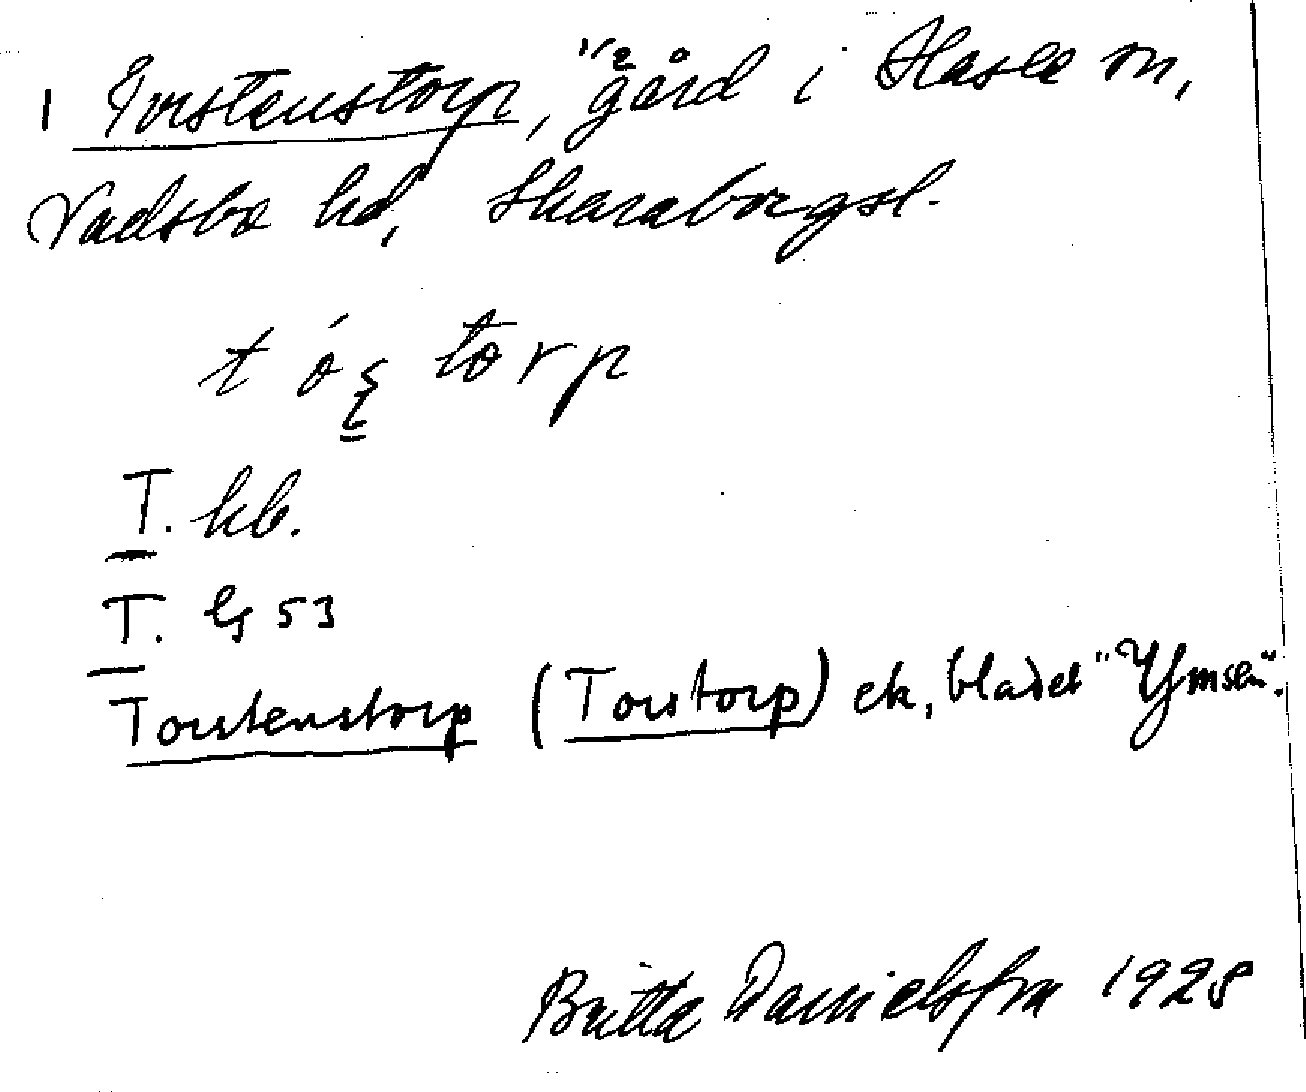 1 Torstenstorp, 1/2 gård i Hassle sn,
Vadsbo hd, Skaraborgsl.
t ó ş torp
T. kb.
T. GS 53
Torstenstorp (Torstorp) ek, bladet "Ymsen".
Britta 1928